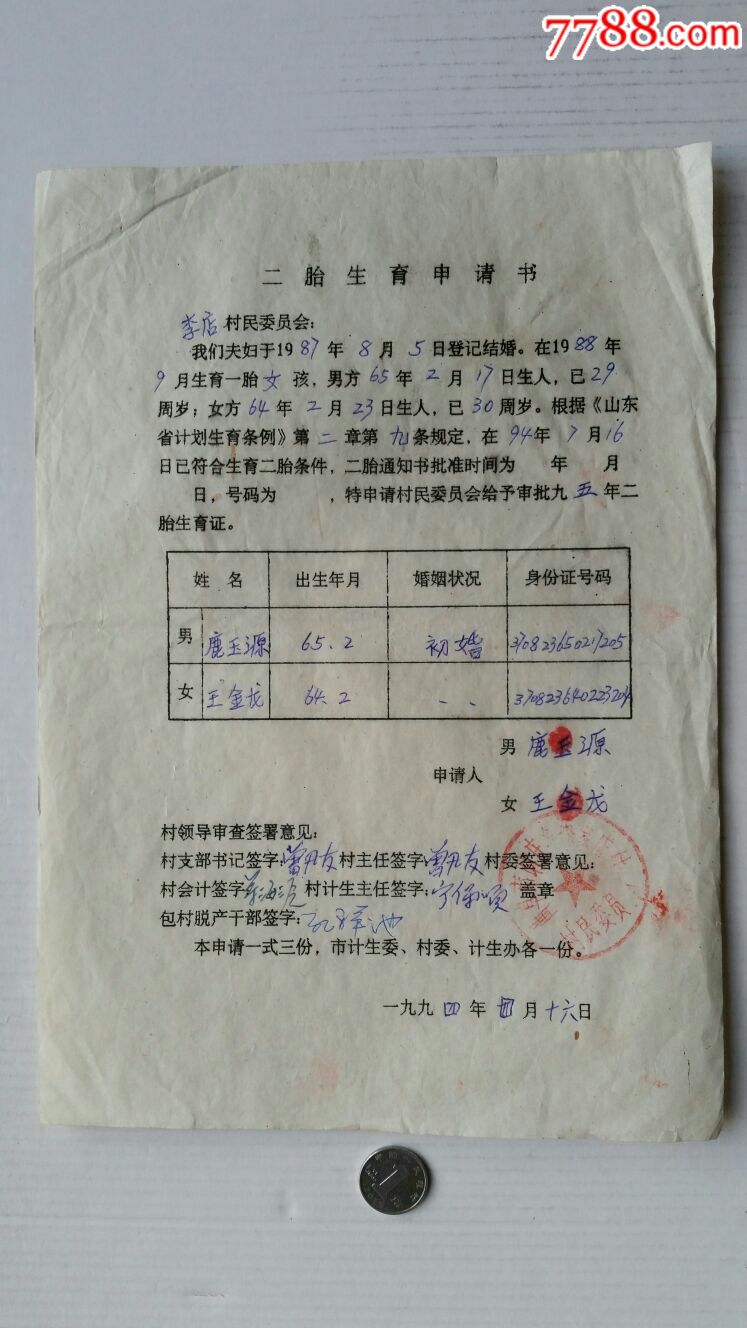 7788.com
二胎生育申请书
李店村民委员会:
我们夫妇于1987年8月5日登记结婚。在1988年
9月生育一胎女孩,男方65年2月17日生人,已29
周岁;女方64年2月23日生人,已30周岁。根据《山东
省计划生育条例》第二章第九条规定,在94年7月16
日已符合生育二胎条件,二胎通知书批准时间为 年 月
日,号码为 ,特申请村民委员会给予审批九五年二
胎生育证。
姓 名 出生年月 婚姻状况 身份证号码
男 鹿玉源 65.2 初婚 370823650217205
女 王金龙 64.2 、、 370823640223204
男 鹿玉源
申请人
女 王金龙
村领导审查签署意见:
村支部书记签字: 村主任签字: 村委签署意见:
村会计签字 村计生主任签字: 盖章
包村脱产干部签字:
村民委员
本申请一式三份,市计生委、村委、计生办各一份。
一九九四年 月十六日